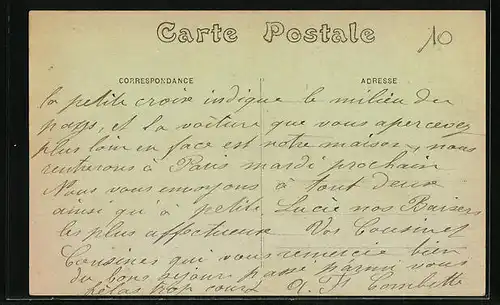 Carte Postale
10
CORRESPONDANCE
ADRESSE
la petite croix indique le milieu du
pays, et la voiture que vous apercevez
plus loin en face est notre maison, nous
rentrerons à Paris mardi prochain
Nous vous envoyons à tout deux
ainsi qu'à petite Lucie nos Baisers
les plus affectueux Vos Cousins
Cousines qui vous remercie bien
du bon séjour passé parmi vous
hélas trop court